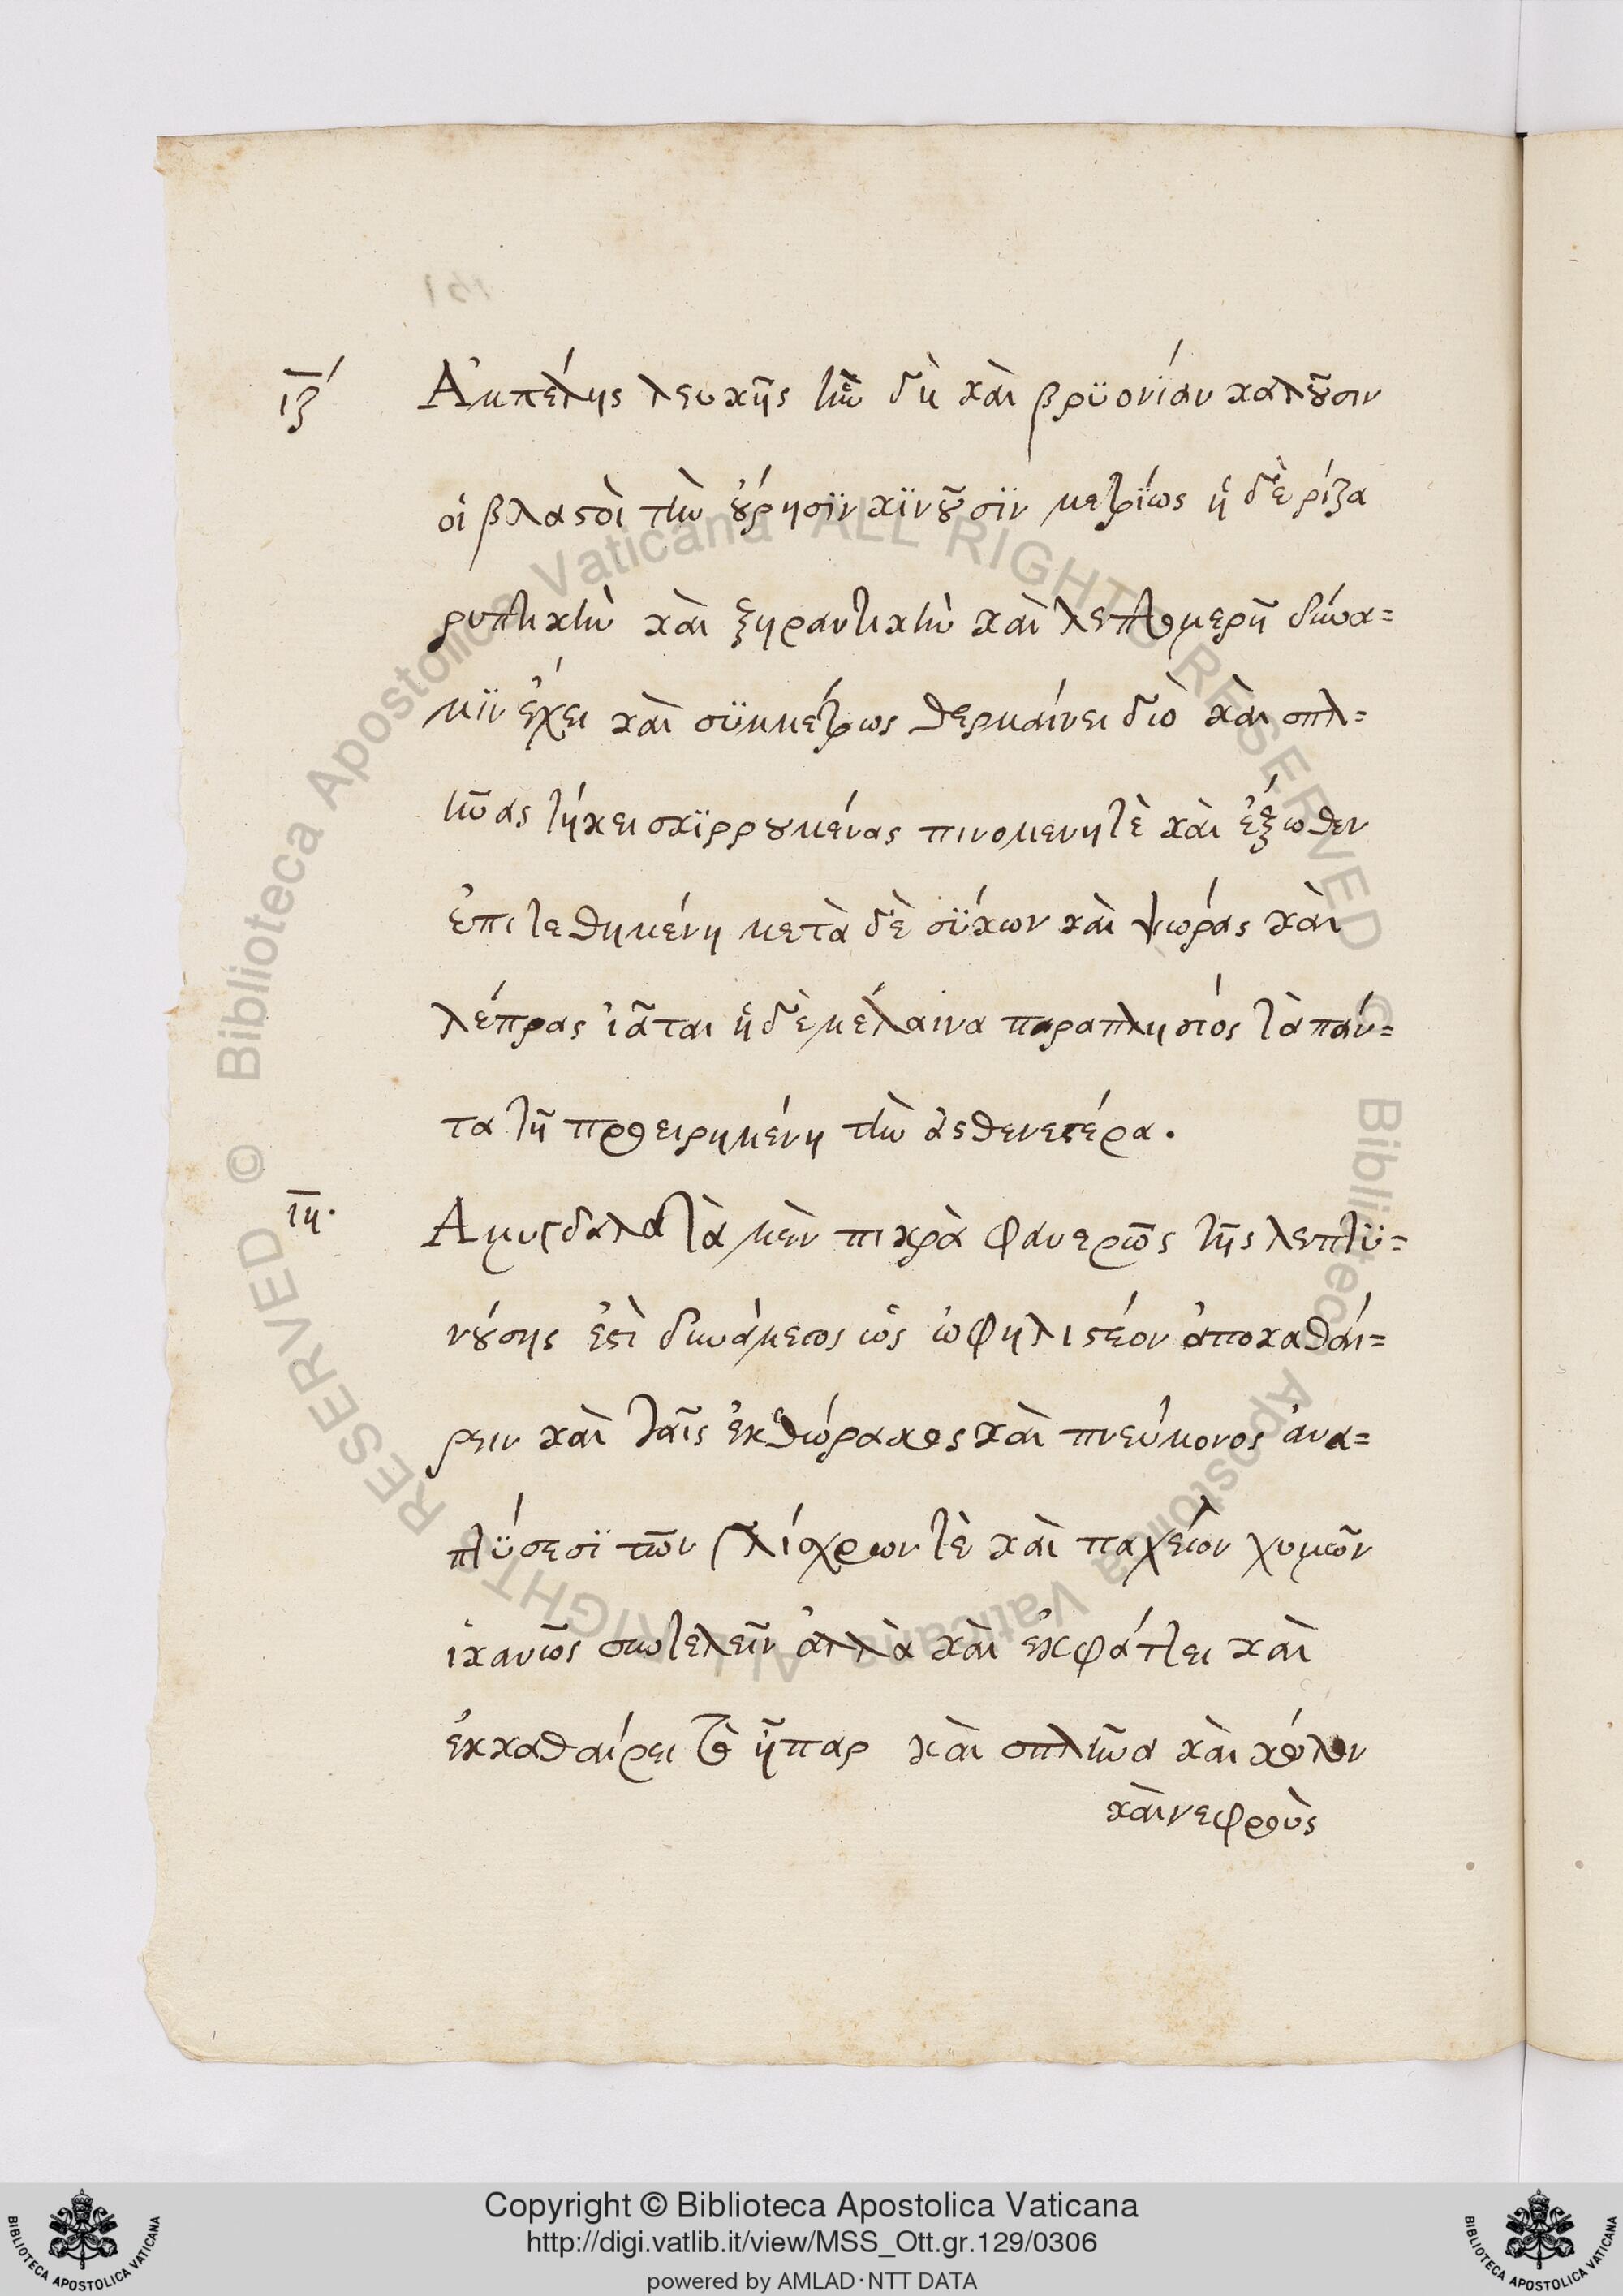 ιζ´ Ἀμπέλης λευκῆς ἣν δὴ καὶ βρϋονίαν καλοῦσιν
οἱ βλαστοὶ τὴν οὔρησϊν κϊνοῦσϊν μετρίως ἡ δὲ ρίζα
ρυπτικὴν καὶ ξηραντικὴν καὶ λεπτομερῆ δύνα=
μϊν ἔχει καὶ σϋμμέτρως θερμαίνει διὸ καὶ σπλ=
ῆνας τήκει σκϊρρουμένας πινομενη τὲ καὶ ἔξωθεν
ἐπιτεθημένη μετὰ δὲ σϋκων καὶ ψωράς καὶ
λέπρας ἰᾶται ἡ δὲ μέλαινα παραπλησιός τὰ πάν=
τα τῆ προειρημένη τὴν ἀσθενεστέρα.
ιη. Ἀμυγδαλα τὰ μὲν πικρὰ φανερῶς τῆς λεπτϋ=
νούσης ἐστὶ δυνάμεως ὡς ὠφηλιστέον ἀποκαθάι=
ρειν καὶ ταῖς ἐκ θώρακος καὶ πνεύμονος ἀνα=
πτϋσεσϊ τῶν γλίσχρων τὲ καὶ παχείων χυμῶν
ἱκανῶς συντελεῖν ἀλλὰ καὶ ἐκφράττει καὶ
ἐκκαθαίρει τὸ ἧπαρ καὶ σπλῆνα καὶ κόλον
καὶ νεφροὺς
Copyright © Biblioteca Apostolica Vaticana
http://digi.vatlib.it/view/MSS_Ott.gr.129/0306
powered by AMLAD·NTT DATA
© Biblioteca Apostolica Vaticana ALL RIGHTS RESERVED
© Biblioteca Apostolica Vaticana ALL RIGHTS RESERVED
BIBLIOTECA APOSTOLICA VATICANA
BIBLIOTECA APOSTOLICA VATICANA